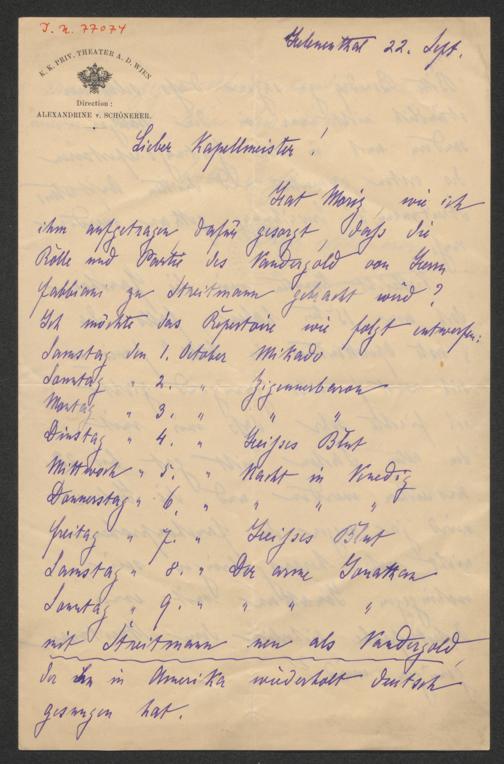 J. N. 77074
K. K. PRIV. THEATER A. D. WIEN
Direction:
ALEXANDRINE v. SCHÖNERER.
Helenenthal 22. Sept.
Lieber Kapellmeister!
Hat Moriz, wie ich
ihm aufgetragen dafür gesorgt, daß die
Rolle und Partie des Vandergold von Herrn
Fabbiani zu Streitmann gebracht wird?
Ich möchte das Repertoire wie folgt entwerfen:
Samstag den 1. October Mikado
Sonntag " 2. " Zigeunerbaron
Montag " 3. " " "
Dinstag " 4. " Heißes Blut
Mittwoch " 5. " Nacht in Venedig
Donnerstag " 6. " " " "
Freitag " 7. " Heißes Blut
Samstag " 8. " Der arme Jonathan
Sonntag " 9. " " " "
mit Streitmann neu als Vandergold,
den in Amerika wiederholt deutsch
gesungen hat.